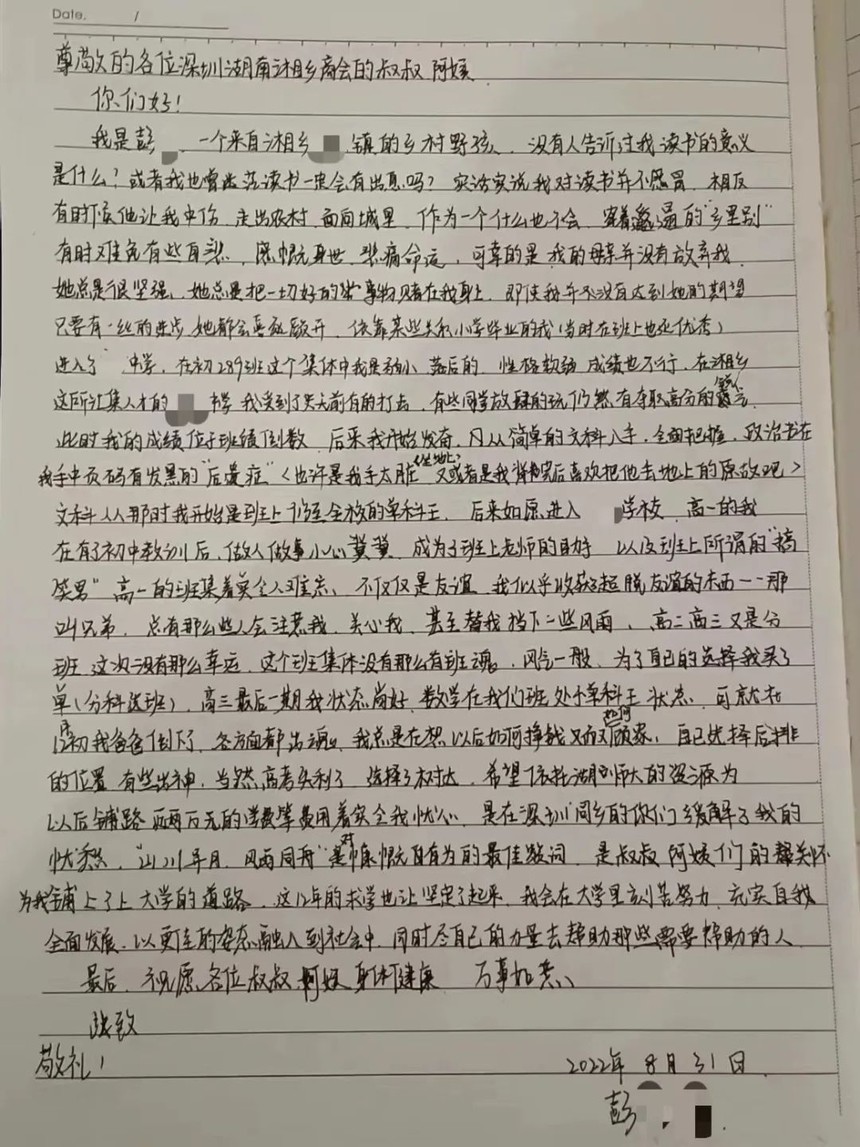 Date. /
尊敬的各位深圳湖南湘乡商会的叔叔阿姨
你们好！
我是彭 一个来自湘乡 镇的乡村野孩、没有人告诉过我读书的意义
是什么？或者我也曾 读书一定会有出息吗？实话实说我对读书并不感冒、相反
有时候他让我中伤、走出农村、面向城里、作为一个什么也不会、穿着邋遢的“乡里别”
有时难免有些自卑、感慨身世、悲痛命运、可幸的是我的母亲并没有放弃我、
她总是很坚强、她总是把一切好的 事物赌在我身上、即使我并不没有达到她的期望
只要有一丝的进步她都会喜逐颜开、依靠某些关系小学毕业的我（当时在班上也还优秀）
进入了 中学，在初289班这个集体中我是弱小、落后的、性格软弱、成绩也不行、在湘乡
这所汇集人才的 中学 我受到了史无前有的打击、有些同学放肆的玩仍然有夺取高分的
此时我的成绩位于班级倒数、后来我开始发奋、从简单的文科入手、全面把握、政治书在
我手中页码有发黑的“后遗症”（也许是我手太脏 又或者是我背 完后喜欢把他去地上的原故吧）
文科从那时我开始是班上乃至全校的单科王、后来如愿进入 学校、高一的我
在有了初中教训后、做人做事小心翼翼、成为了班上老师的 以及班上所谓的“搞
笑男” 高一的班集着实令人难忘、不仅仅是友谊、我似乎收获了超脱友谊的东西——那
叫兄弟、总有那么些人会注意我、关心我、甚至替我挡下一些风雨、高二高三又是分
班、这次没有那么幸运、这个班集体没有那么有班魂、风气一般、为了自己的选择我买了
单（分科选班）、高三最后一期我状态尚好、数学在我们班处于单科王状态、可就在
初我爸爸倒下了、各方面都出 、我总是在想以后如何挣钱又如何顾家、自己选择后排
的位置、有些出神、当然高考失利了、选择了树达、希望依托湖师大的资源为
以后铺路 两万元的学费等费用着实令我忧心、是在深圳同乡的你们缓解了我的
忧愁、“山川年月、风雨同舟”是对慷慨有为的最佳 词、是叔叔阿姨们的 关怀
为我铺上了上大学的道路、这12年的求学也让坚定了起来、我会在大学里刻苦努力、充实自我
全面发展、以更 的姿态融入到社会中、同时尽自己的力量去帮助那些需要帮助的人
最后、祝愿各位叔叔阿姨身体健康 万事如意、
此致
敬礼！
2022年8月31日
彭